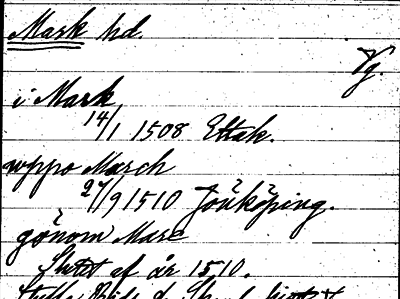 Mark hd.
Vg.
i Mark
14/1 1508 Ettak.
uppo March
27/9 1510 Jönköping.
gönom Marc
Slutet af år 1510.